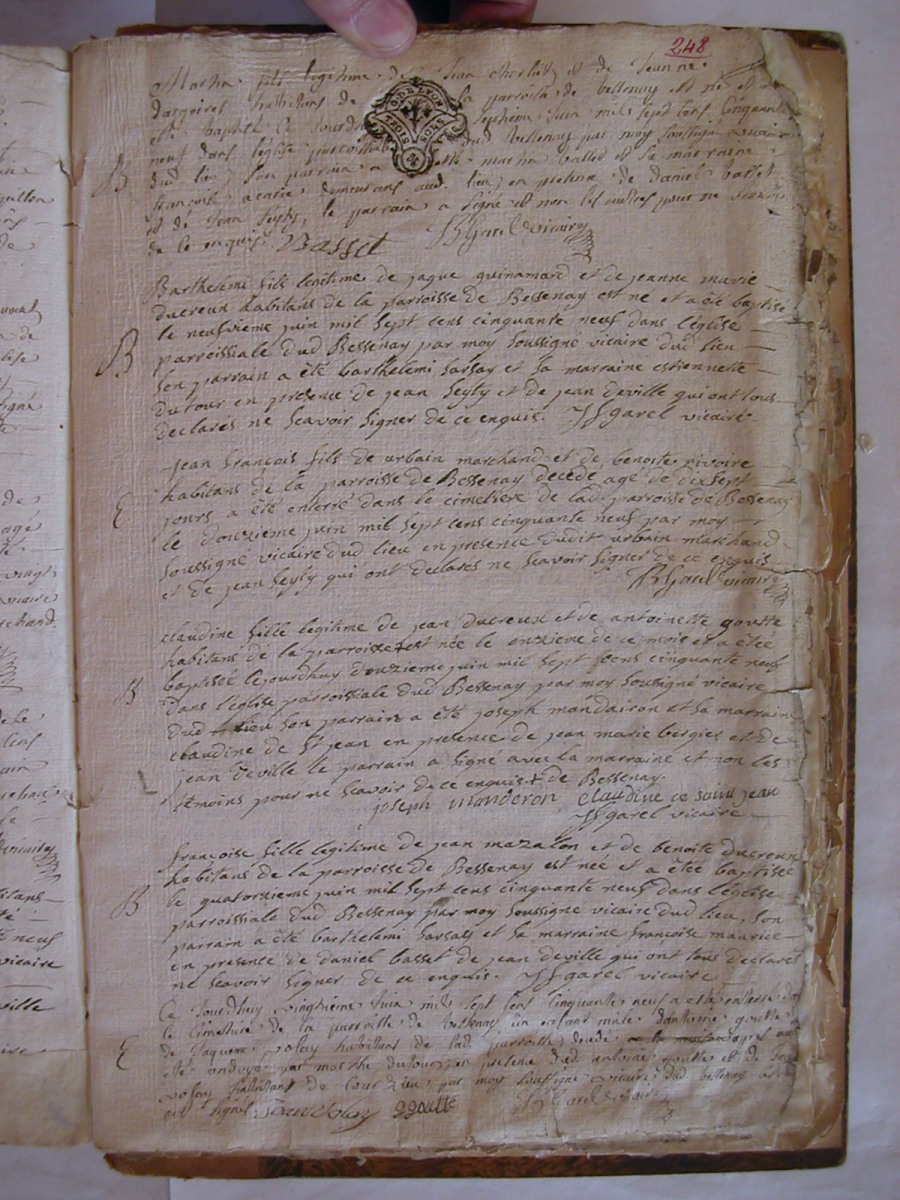 248
Martin fils legitime de Jean et de Jeanne
habitans de la parroisse de Bessenay est né et a
eté baptisé ce jourdhuy septieme juin mil sept cens cinquante
neuf dans l'eglise parroissiale dud Bessenay par moy soussigné vicaire
dud lieu son parrain a eté martin basset et sa marraine
demeurans aud lieu en presence de daniel basset
et de Jean Seyty, le parrain a signé et non les autres pour ne scavoir
de ce enquis. Basset JB Garel vicaire
B
Barthelemi fils legitime de jaque guinamard et de jeanne marie
ducreux habitans de la parroisse de Bessenay est né et a été baptisé
le neufvieme juin mil sept cens cinquante neuf dans l'église
parroissiale dud Bessenay par moy soussigné vicaire dud lieu
son parrain a été barthelemi sarsay et sa marraine estiennette
dutour en presence de jean seyty et de jean deville qui ont tous
declarés ne scavoir signer de ce enquis. JB garel vicaire
B
jean françois fils de urbain marchand et de benoite pivoire
habitans de la parroisse de Bessenay décédé agé de dix sept
jours a été enterré dans le cimetière de lad. parroisse de Bessenay
le douzieme juin mil sept cens cinquante neuf par moy
soussigné vicaire dud lieu en presence dudit urbain marchand
et de jean seyty qui ont declarés ne scavoir signer de ce enquis
JB Garel vicaire
E
claudine fille legitime de jean ducreux et de antoinette goutte
habitans de la parroisse + est née le onzieme de ce mois et a étée
baptisée cejourdhuy douzieme juin mil sept cens cinquante neuf
dans l'église parroissiale dud Bessenay par moy soussigné vicaire
dud lieu son parrain a été joseph mandairon et sa marraine
claudine de st jean en presence de jean marie bergies et de
jean deville le parrain a signé avec la marraine et non les
témoins pour ne scavoir de ce enquis + de Bessenay.
joseph manderon claudine de saint jean
JB garel vicaire
B
françoise fille legitime de jean mazalon et de benoite ducreux
habitans de la parroisse de Bessenay est née et a étée baptisée
le quatorzieme juin mil sept cens cinquante neuf dans l'église
parroissiale dud Bessenay par moy soussigné vicaire dud lieu, son
parrain a été barthelemi sarsay et sa marraine françoise maurice
en presence de daniel basset de jean deville qui ont tous declarés
ne scavoir signer de ce enquis. JB garel vicaire
B
Ce jourdhuy vingtième juin mil sept cens cinquante neuf a esté enterré dans
le cimetiere de la parroisse de Bessenay un enfant male d'antoine goutte
de habitans de lad parroisse
esté ondoyé par marthe dutour en presence dud antoine goutte et de
habitant de par moy soussigné vicaire dud bessenay
ont signés. ggoutte JB Garel vicaire
E